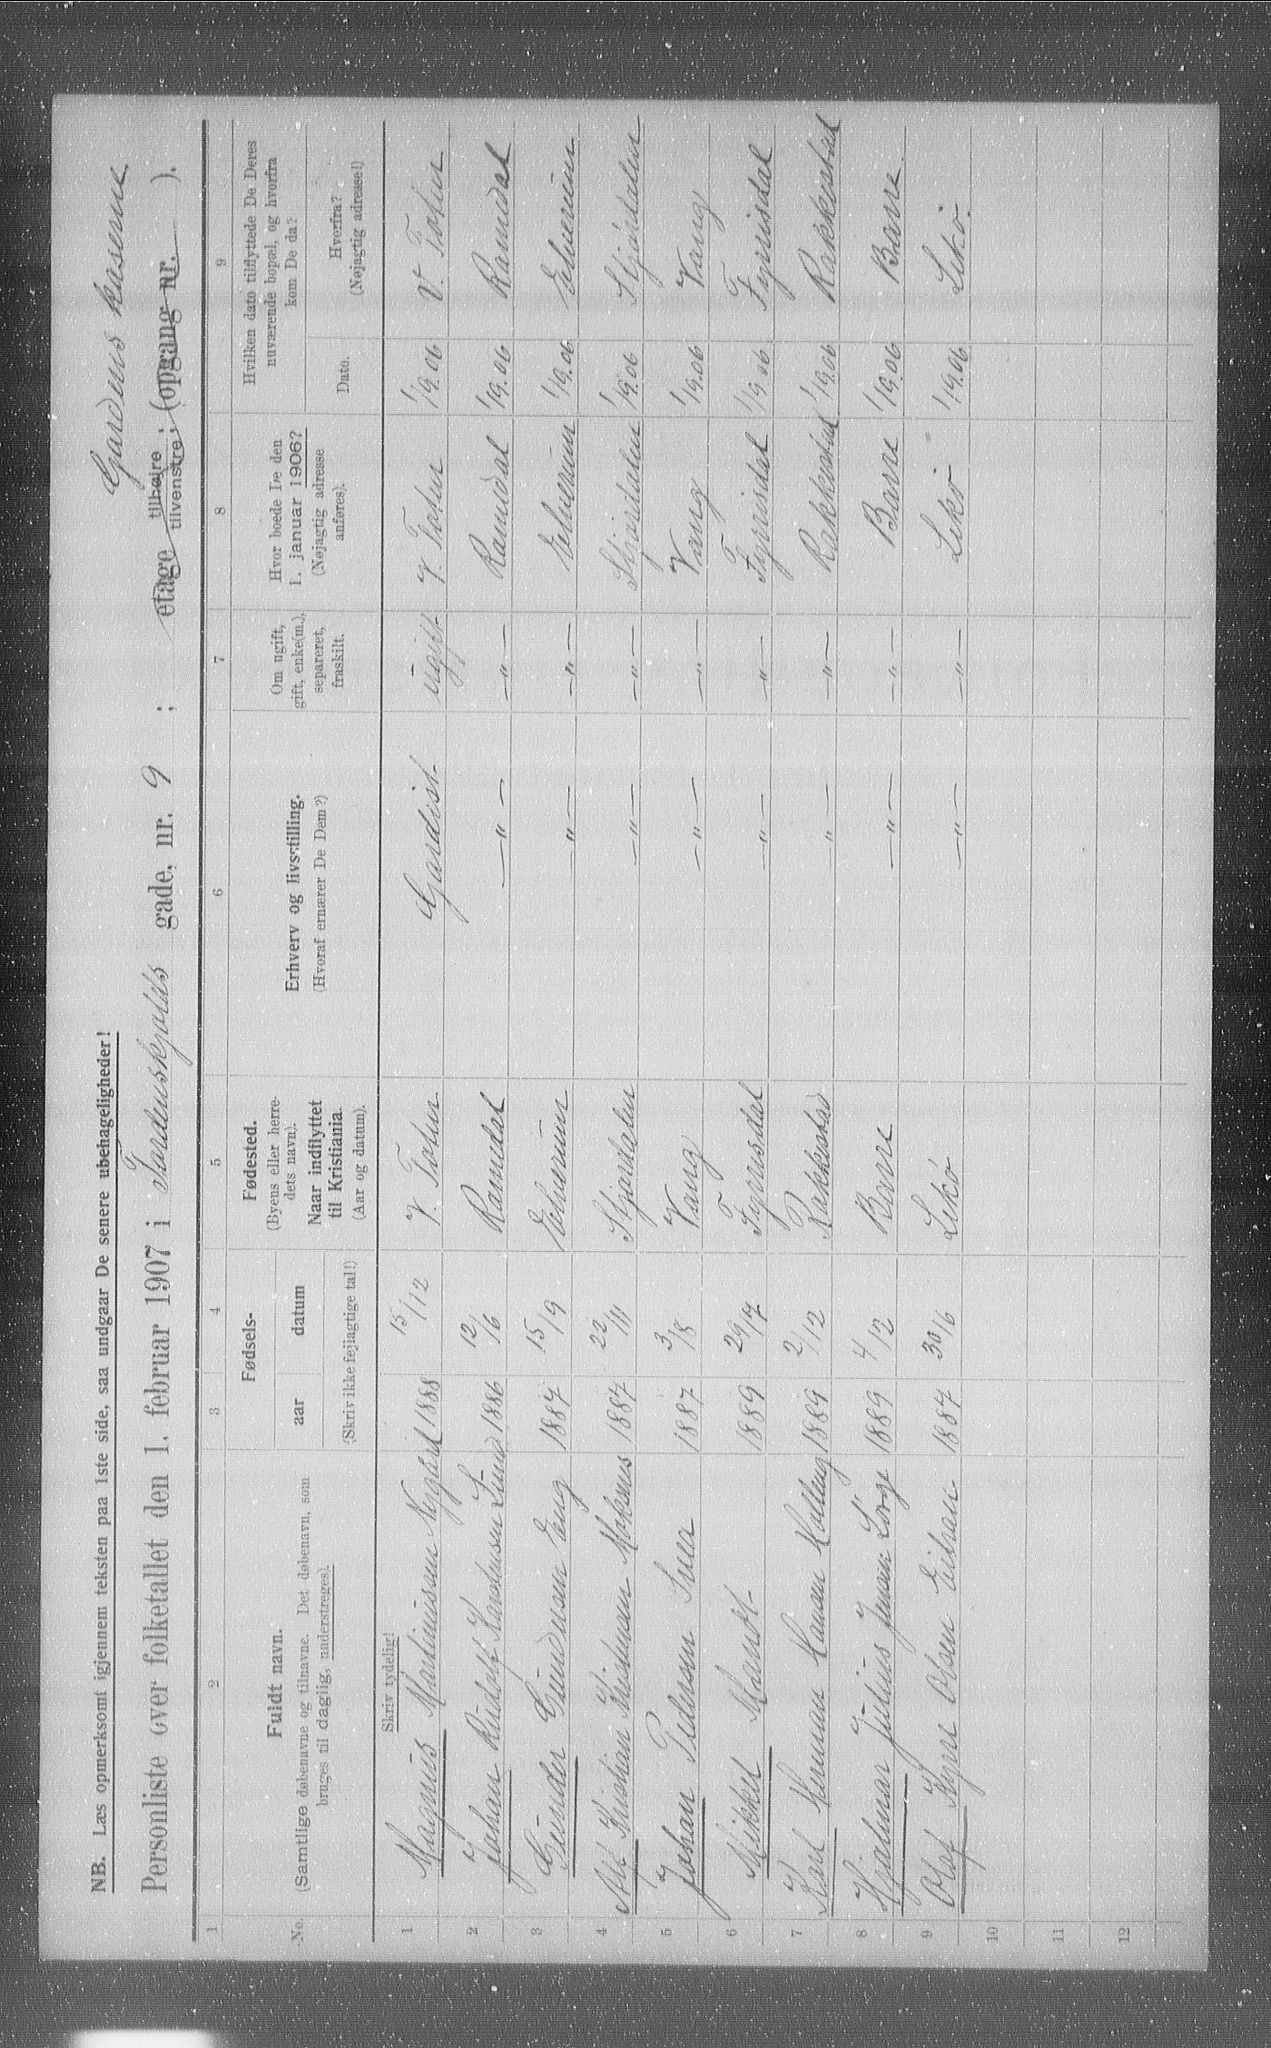 NB. Læs opmerksomt igjennem teksten paa 1ste side, saa undgaar De senere ubehageligheder!
Gardens kaserne
Personliste over folketallet den 1. februar 1907 i Tordenskjolds gade, nr. 9 ; etage tilhøjre tilvenstre; (opgang nr. ).
1 2 3 4 5 6 7 8 9
No.
Fuldt navn.
(Samtlige døbenavne og tilnavne. Det døbenavn, som
bruges til daglig, understreges).
Fødsels-
aar datum
(Skriv ikke fejlagtige tal!)
Fødested.
(Byens eller herre-
dets navn).
Naar indflyttet
til Kristiania.
(Aar og datum).
Erhverv og livsstilling.
(Hvoraf ernærer De Dem?)
Om ugift,
gift, enke(m.),
separeret,
fraskilt.
Hvor boede De den
1. januar 1906?
(Nøjagtig adresse
anføres).
Hvilken dato tilflyttede De Deres
nuværende bopæl, og hvorfra
kom De da?
Dato.
Hvorfra?
(Nøjagtig adresse!)
Skriv tydelig!
1 Magnus Martinussen Nygård 1888 15/12 V. Toten Gardist ugift V. Toten 1/9.06 V. Toten
2 Johan Rudolf Karelusen Lund 1886 12/6 Ramdal —"— —"— Ramdal 1/9.06 Ramdal
3 Gunder Gundersen Eng 1887 15/9 Elverum —"— —"— Elverum 1/9.06 Elverum
4 Alf Kristian Kristiansen Moksnes 1887 22/11 Stjørdalen —"— —"— Stjørdalen 1/9.06 Stjørdalen
5 Johan Pedersen 1887 3/8 Vang —"— —"— Vang 1/9.06 Vang
6 Mikkel Mandt 1889 29/7 Fyrisdal —"— —"— Fyrisdal 1/9.06 Fyrisdal
7 Karl Herman Hansen Kolling 1889 2/12 Rakkestad —"— —"— Rakkestad 1/9.06 Rakkestad
8 Hjalmar Julius Jensen 1889 4/12 Borre —"— —"— Borre 1/9.06 Borre
9 Olaf Olsen 1887 30/6 Lekø —"— —"— Lekø 1/9.06 Lekø.
10
11
12